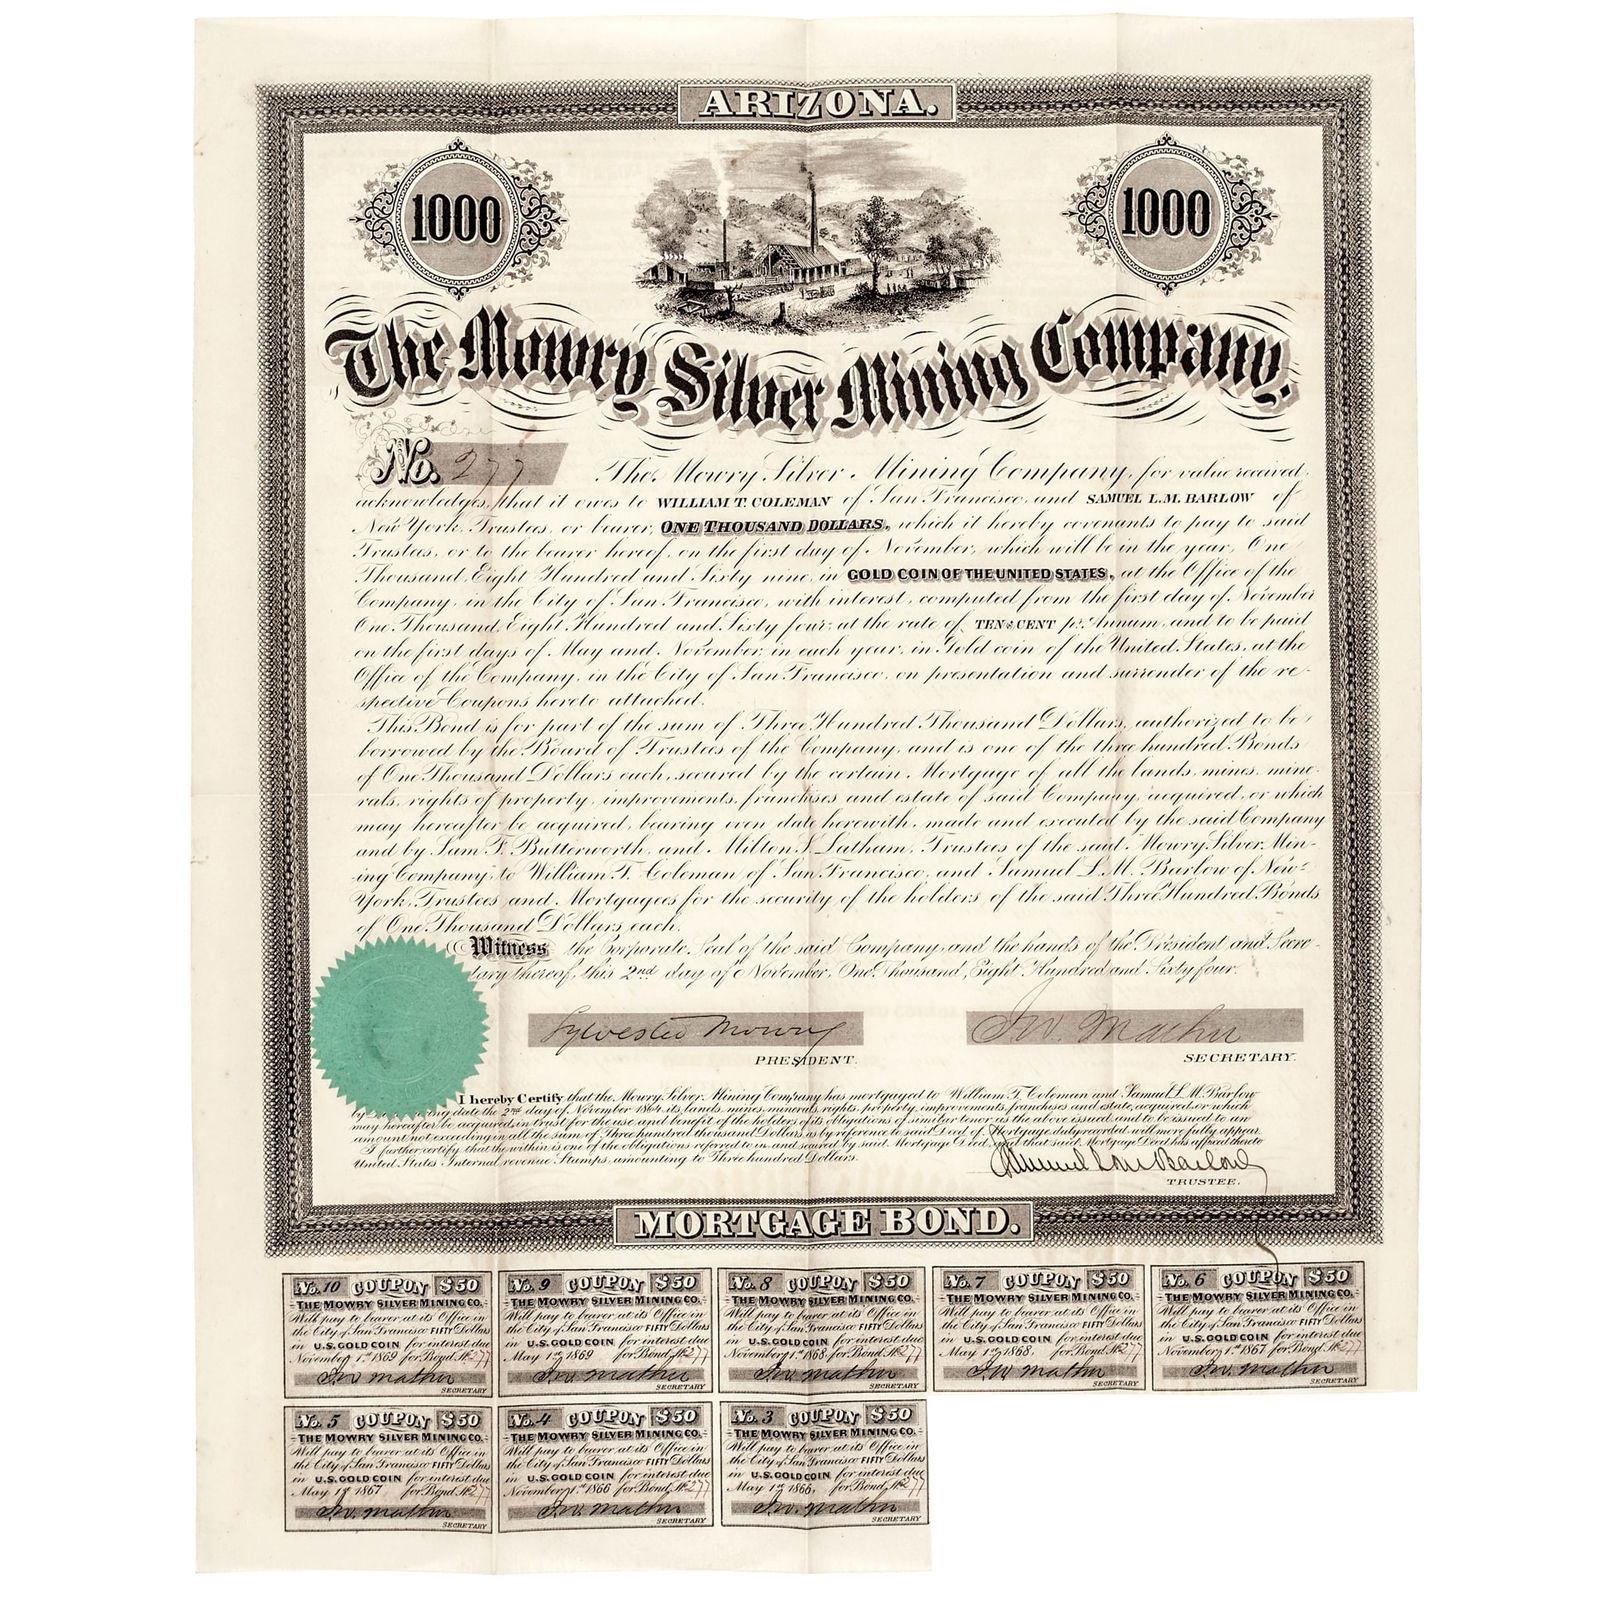 ARIZONA.
1000
1000
The Mowry Silver Mining Company.
No. 277
The Mowry Silver Mining Company, for value received,
acknowledges, that it owes to WILLIAM T. COLEMAN of San Francisco, and SAMUEL L.M. BARLOW of
New York, Trustees, or bearer, ONE THOUSAND DOLLARS, which it hereby covenants to pay to said
Trustees, or to the bearer hereof, on the first day of November, which will be in the year, One
Thousand, Eight Hundred and Sixty nine, in GOLD COIN OF THE UNITED STATES, at the Office of the
Company, in the City of San Francisco, with interest, computed from the first day of November
One Thousand, Eight Hundred and Sixty four, at the rate of TEN PR CENT pr. Annum, and to be paid
on the first days of May and November, in each year, in Gold coin of the United States, at the
Office of the Company, in the City of San Francisco, on presentation and surrender of the re-
spective Coupons hereto attached.
This Bond is for part of the sum of Three Hundred Thousand Dollars, authorized to be
borrowed by the Board of Trustees of the Company, and is one of the three hundred Bonds
of One Thousand Dollars each, secured by the certain Mortgage of all the lands, mines, mine-
rals, rights of property, improvements, franchises and estate of said Company, acquired, or which
may hereafter be acquired, bearing even date herewith, made and executed by the said Company
and by Sam F. Butterworth, and Milton S. Latham, Trustees of the said Mowry Silver Min-
ing Company, to William T. Coleman of San Francisco, and Samuel L.M. Barlow of New
York, Trustees, and Mortgagees for the security of the holders of the said Three Hundred Bonds
of One Thousand Dollars, each.
Witness the Corporate Seal of the said Company, and the hands of the President and Secre-
tary thereof, this 2nd day of November, One Thousand, Eight Hundred and Sixty four.
Sylvester Mowry
PRESIDENT.
SECRETARY.
I hereby Certify that the Mowry Silver Mining Company has mortgaged to William T. Coleman and Samuel L.M. Barlow
by date the 2nd day of November 1864, its lands, mines, minerals, rights, property, improvements, franchises and estate, acquired, or which
may hereafter be acquired, in trust for the use and benefit of the holders of its obligations of similar tenor as the above issued, and to be issued to an
amount not exceeding in all the sum of Three hundred thousand Dollars, as by reference to said Deed of Mortgage, duly recorded, will more fully appear.
I further certify, that the within is one of the obligations referred to in and secured by said Mortgage Deed, and that said Mortgage Deed has affixed thereto
United States Internal revenue Stamps, amounting to Three hundred Dollars.
TRUSTEE.
MORTGAGE BOND.
No. 10 COUPON $50
THE MOWRY SILVER MINING CO.
Will pay to bearer at its Office in
the City of San Francisco FIFTY Dollars
in U.S. GOLD COIN for interest due
November 1st 1869 for Bond No. 277
SECRETARY
No. 9 COUPON $50
THE MOWRY SILVER MINING CO.
Will pay to bearer at its Office in
the City of San Francisco FIFTY Dollars
in U.S. GOLD COIN for interest due
May 1st 1869 for Bond No. 277
SECRETARY
No. 8 COUPON $50
THE MOWRY SILVER MINING CO.
Will pay to bearer at its Office in
the City of San Francisco FIFTY Dollars
in U.S. GOLD COIN for interest due
November 1st 1868 for Bond No. 277
SECRETARY
No. 7 COUPON $50
THE MOWRY SILVER MINING CO.
Will pay to bearer at its Office in
the City of San Francisco FIFTY Dollars
in U.S. GOLD COIN for interest due
May 1st 1868. for Bond No. 277
SECRETARY
No. 6 COUPON $50
THE MOWRY SILVER MINING CO.
Will pay to bearer at its Office in
the City of San Francisco FIFTY Dollars
in U.S. GOLD COIN for interest due
November 1st 1867 for Bond No. 277
SECRETARY
No. 5 COUPON $50
THE MOWRY SILVER MINING CO.
Will pay to bearer at its Office in
the City of San Francisco FIFTY Dollars
in U.S. GOLD COIN for interest due
May 1st 1867 for Bond No. 277
SECRETARY
No. 4 COUPON $50
THE MOWRY SILVER MINING CO.
Will pay to bearer at its Office in
the City of San Francisco FIFTY Dollars
in U.S. GOLD COIN for interest due
November 1st 1866 for Bond No. 277
SECRETARY
No. 3 COUPON $50
THE MOWRY SILVER MINING CO.
Will pay to bearer at its Office in
the City of San Francisco FIFTY Dollars
in U.S. GOLD COIN for interest due
May 1st 1866, for Bond No. 277
SECRETARY